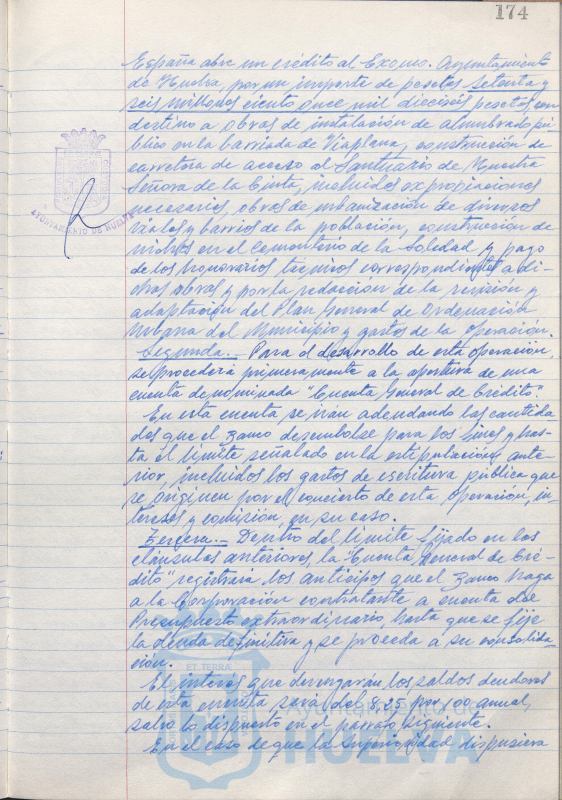 174
España abre un crédito al Excmo. Ayuntamiento
de Huelva, por un importe de pesetas setenta y
seis millones ciento once mil dieciseis pesetas con
destino a obras de instalación de alumbrado pú-
blico en la barriada de Viaplana, construcción de
carretera de acceso al Santuario de Nuestra
Señora de la Cinta, incluidas expropiaciones
necesarias, obras de urbanización de diversos
viales y barrios de la población, construcción de
nichos en el Cementerio de la Soledad y pago
de los honorarios técnicos correspondientes a di-
chas obras y por la redacción de la revisión y
adaptación del Plan General de Ordenación
Urbana del Municipio y gastos de la operación.
Segunda.- Para el desarrollo de esta operación,
se procederá primeramente a la apertura de una
cuenta denominada "Cuenta General de Crédito".
En esta cuenta se irán adeudando las cantida-
des que el Banco desembolse para los fines y has-
ta el límite señalado en la estipulación ante-
rior, incluidos los gastos de escritura pública que
se originen por el concierto de esta operación, in-
tereses y comisión, en su caso.
Tercera.- Dentro del límite fijado en las
cláusulas anteriores, la "Cuenta General de Cré-
dito" registrará los anticipos que el Banco haga
a la Corporación contratante a cuenta del
Presupuesto extraordinario, hasta que se fije
la deuda definitiva y se proceda a su consolida-
ción.
El interés que devengarán los saldos deudores
de esta cuenta será del 8,25 por 100 anual,
salvo lo dispuesto en el párrafo siguiente.
En el caso de que la Superioridad dispusiera
AYUNTAMIENTO DE HUELVA
ET TERRÆ
Ayuntamiento de
HUELVA